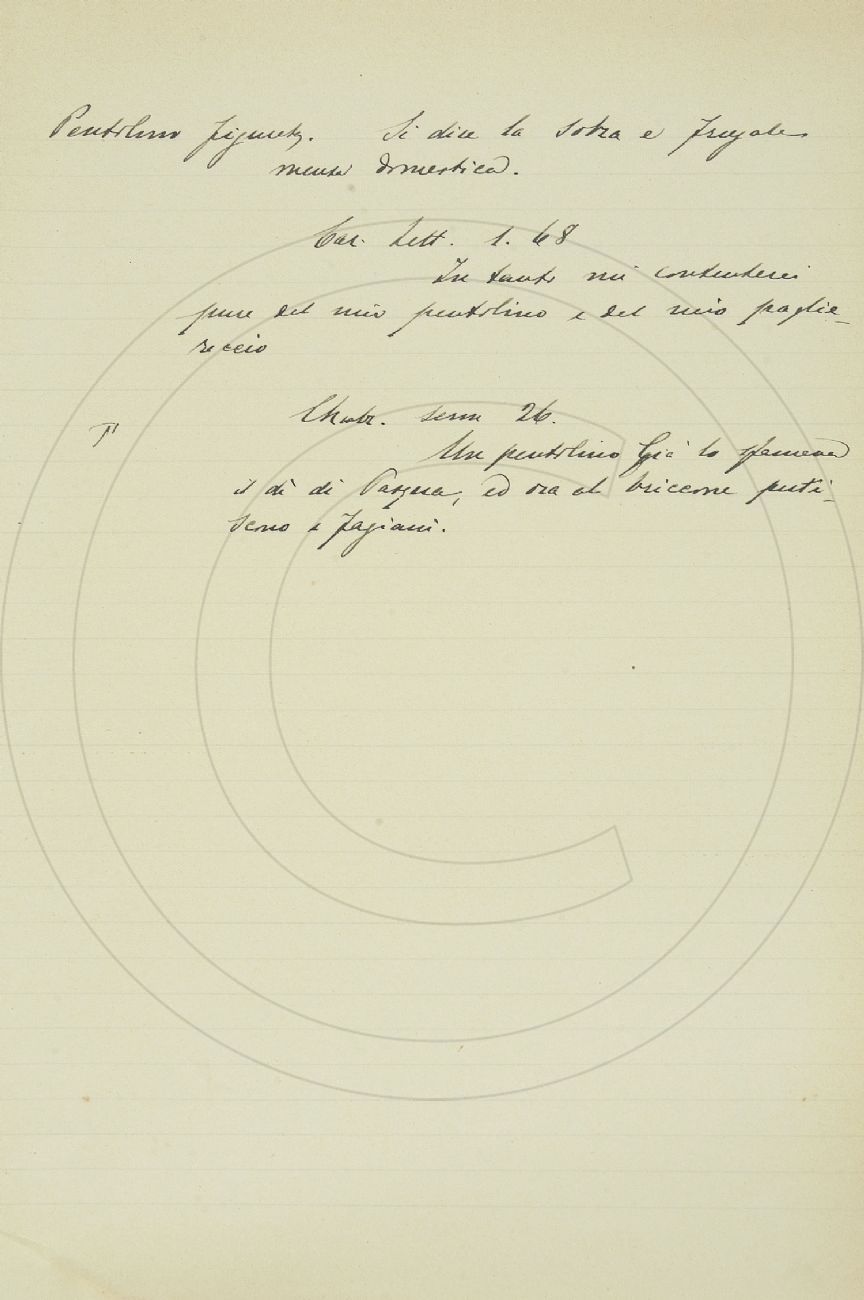 Pentolino figurat. Si dice la sobria e frugale
mensa domestica.
Car. Lett. 1. 68
In tanto mi contenterei
pure del mio pentolino e del mio paglie-
riccio
Chiabr. serm 26.
T
Un pentolino Già lo sfamava
il dì di Pasqua, ed ora al briccone puti-
scono i fagiani.